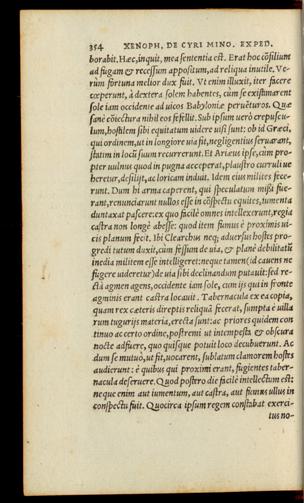 354 XENOPH. DE CYRI MINO. EXPED.
borabit. Hæc, inquit, mea sententia est. Erat hoc cõsilium
ad fugam & recessum appositum, ad reliqua inutile. Ve-
rùm fortuna melior dux fuit. Vt enim illuxit, iter facere
cœperunt, à dextera solem habentes, cùm se existimarent
sole iam occidente ad uicos Babyloniæ peruẽturos. Quæ
sanè cõiectura nihil eos fefellit. Sub ipsum uerò crepuscu-
lum, hostilem sibi equitatum uidere uisi sunt: ob id Græci,
qui ordinem, ut in longiore uia fit, negligentius seruarant,
statim in locũ suum recurrerunt. Et Ariæus ipse, cùm pro-
pter uulnus quod in pugna acceperat, plaustro curruli ue
heretur, desilijt, ac loricam induit. Idem eius milites fece-
runt. Dum hi arma caperent, qui speculatum missi fue-
rant, renunciarunt nullos esse in cõspectu equites, iumenta
duntaxat pascere: ex quo facilè omnes intellexerunt, regia
castra non longè abesse: quod item fumus è proximis ui-
cis planum fecit. Ibi Clearchus neq; aduersus hostes pro-
gredi tutum duxit, cùm fessum de uia, & planè debilitatũ
inedia militem esse intelligeret: neque tamen (id cauens ne
fugere uideretur) de uia sibi declinandum putauit: sed re-
ctà agmen agens, occidente iam sole, cum ijs qui in fronte
agminis erant castra locauit. Tabernacula ex ea copia,
quam rex cæteris direptis reliquã fecerat, sumpta è uilla
rum tugurijs materia, erecta sunt: ac priores quidem con
tinuo ac certo ordine, postremi ut intempesta, & obscura
nocte adfuere, quo quisque potuit loco decubuerunt. Ac
dum se mutuò, ut fit, uocarent, sublatum clamorem hostes
audierunt: è quibus qui proximi erant, fugientes taber-
nacula deseruere. Quod postro die facilè intellectum est:
neque enim aut iumentum, aut castra, aut fumus ullus in
conspectu fuit. Quocirca ipsum regem constabat exerci-
tus no-